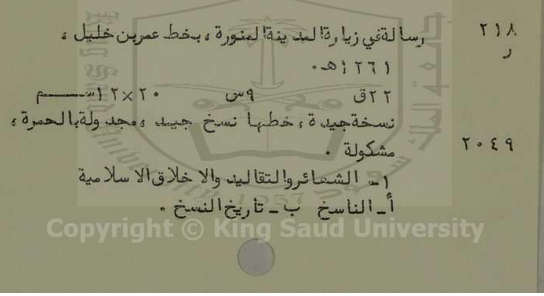 ٢١٨ رسالة في زيارة المدينة المنورة ، بخط عمر بن خليل ،
ر ١٢٦١هـ .
٢٢ق ٩س ٢٠×١٢سم
نسخة جيدة ، خطها نسخ جيد ، مجدولة بالحمرة ،
٢٠٤٩ مشكولة .
١ـ الشعائر والتقاليد والاخلاق الاسلامية
أـ الناسخ ب ـ تاريخ النسخ .
Copyright © King Saud University